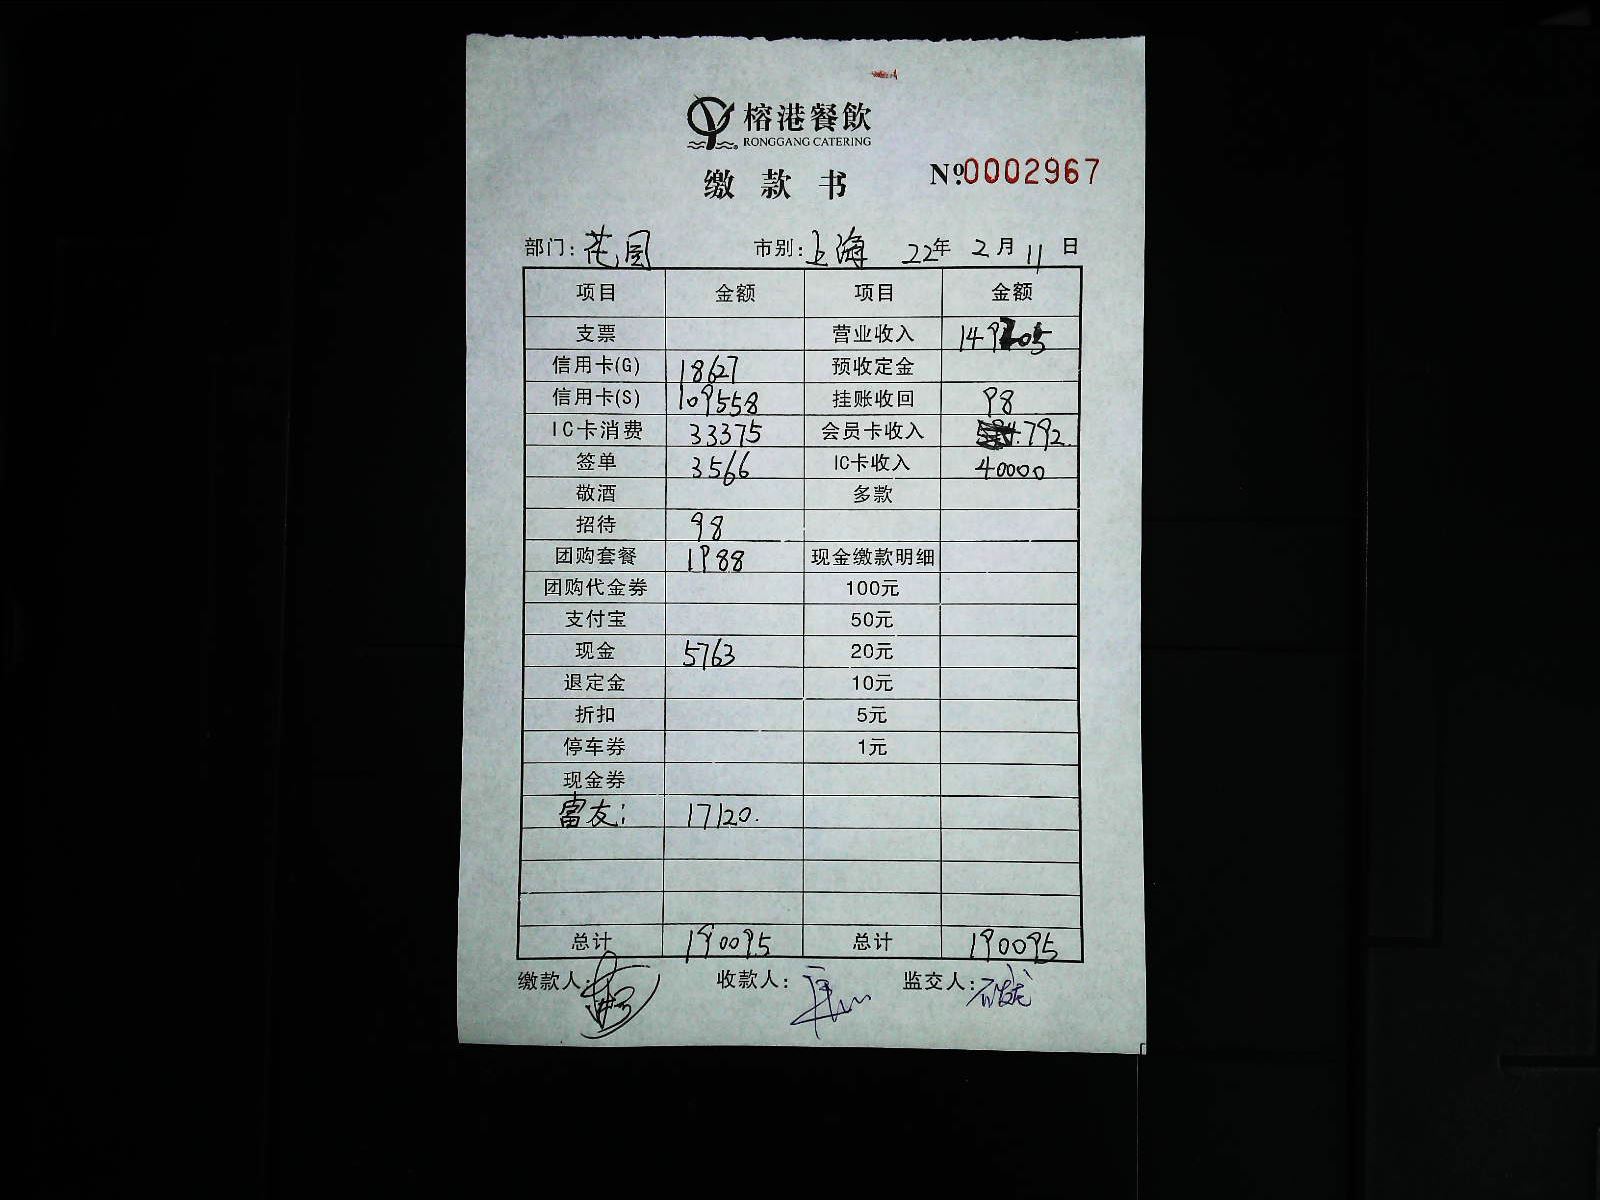 榕港餐飲
RONGGANG CATERING
缴款书 Nº.0002967
部门: 花园 市别: 上海 22年 2月 11日
项目 金额 项目 金额
支票 营业收入 149205
信用卡(G) 18627 预收定金
信用卡(S) 109558 挂账收回 98
IC卡消费 33375 会员卡收入 792.
签单 3566 IC卡收入 40000
敬酒 多款
招待 98
团购套餐 1988 现金缴款明细
团购代金券 100元
支付宝 50元
现金 5763 20元
退定金 10元
折扣 5元
停车券 1元
现金券
富友: 17120.
总计 190095 总计 190095
缴款人: 收款人: 监交人: